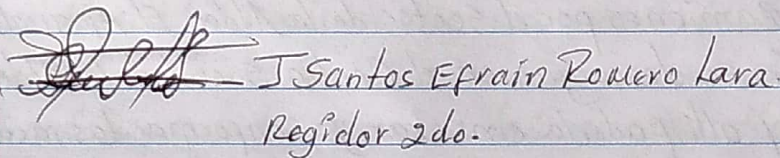 J Santos Efrain Romero Lara.
Regidor 2do.